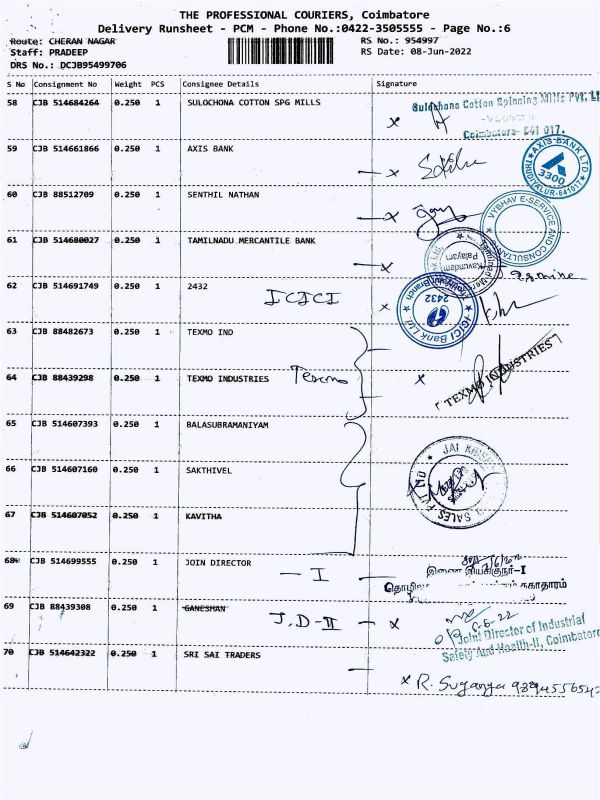 THE PROFESSIONAL COURIERS, Coimbatore
Delivery Runsheet - PCM - Phone No.:0422-3505555 - Page No.:6
Route: CHERAN NAGAR RS No.: 954997
Staff: PRADEEP RS Date: 08-Jun-2022
DRS No.: DCJB95499706
S No Consignment No Weight PCS Consignee Details Signature
58 CJB 514684264 0.250 1 SULOCHONA COTTON SPG MILLS
Sulochana Cotton Spinning Mills Pvt. Lt
x
Coimbatore- 641 017.
59 CJB 514661866 0.250 1 AXIS BANK
x
AXIS BANK LTD
3300
THUDIYALUR-641017
60 CJB 88512709 0.250 1 SENTHIL NATHAN
x
VYBHAV E-SERVICE AND CONSULTAN
61 CJB 514680027 0.250 1 TAMILNADU MERCANTILE BANK
x
Kavundam
Palayam
62 CJB 514691749 0.250 1 2432
ICICI
x
2432
ICICI Bank Ltd.
63 CJB 88482673 0.250 1 TEXMO IND
64 CJB 88439298 0.250 1 TEXMO INDUSTRIES Texmo
x
TEXMO INDUSTRIES
65 CJB 514607393 0.250 1 BALASUBRAMANIYAM
66 CJB 514607160 0.250 1 SAKTHIVEL
JAI
SALES
67 CJB 514607052 0.250 1 KAVITHA
68 CJB 514699555 0.250 1 JOIN DIRECTOR
- I
இணை இயக்குநர்-I
சுகாதாரம்
69 CJB 88439308 0.250 1 GANESHAN
J.D-II - x
8-6-22
Joint Director of Industrial
Safety And Health-II, Coimbatore
70 CJB 514642322 0.250 1 SRI SAI TRADERS
x R. Suganya